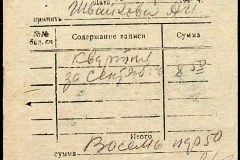 принять
Швайлова А И
№№ бил. сч.
Содержание записи
Сумма
Квартпл
за Сентябрь 8 50
Итого
сумма Восемь р 50